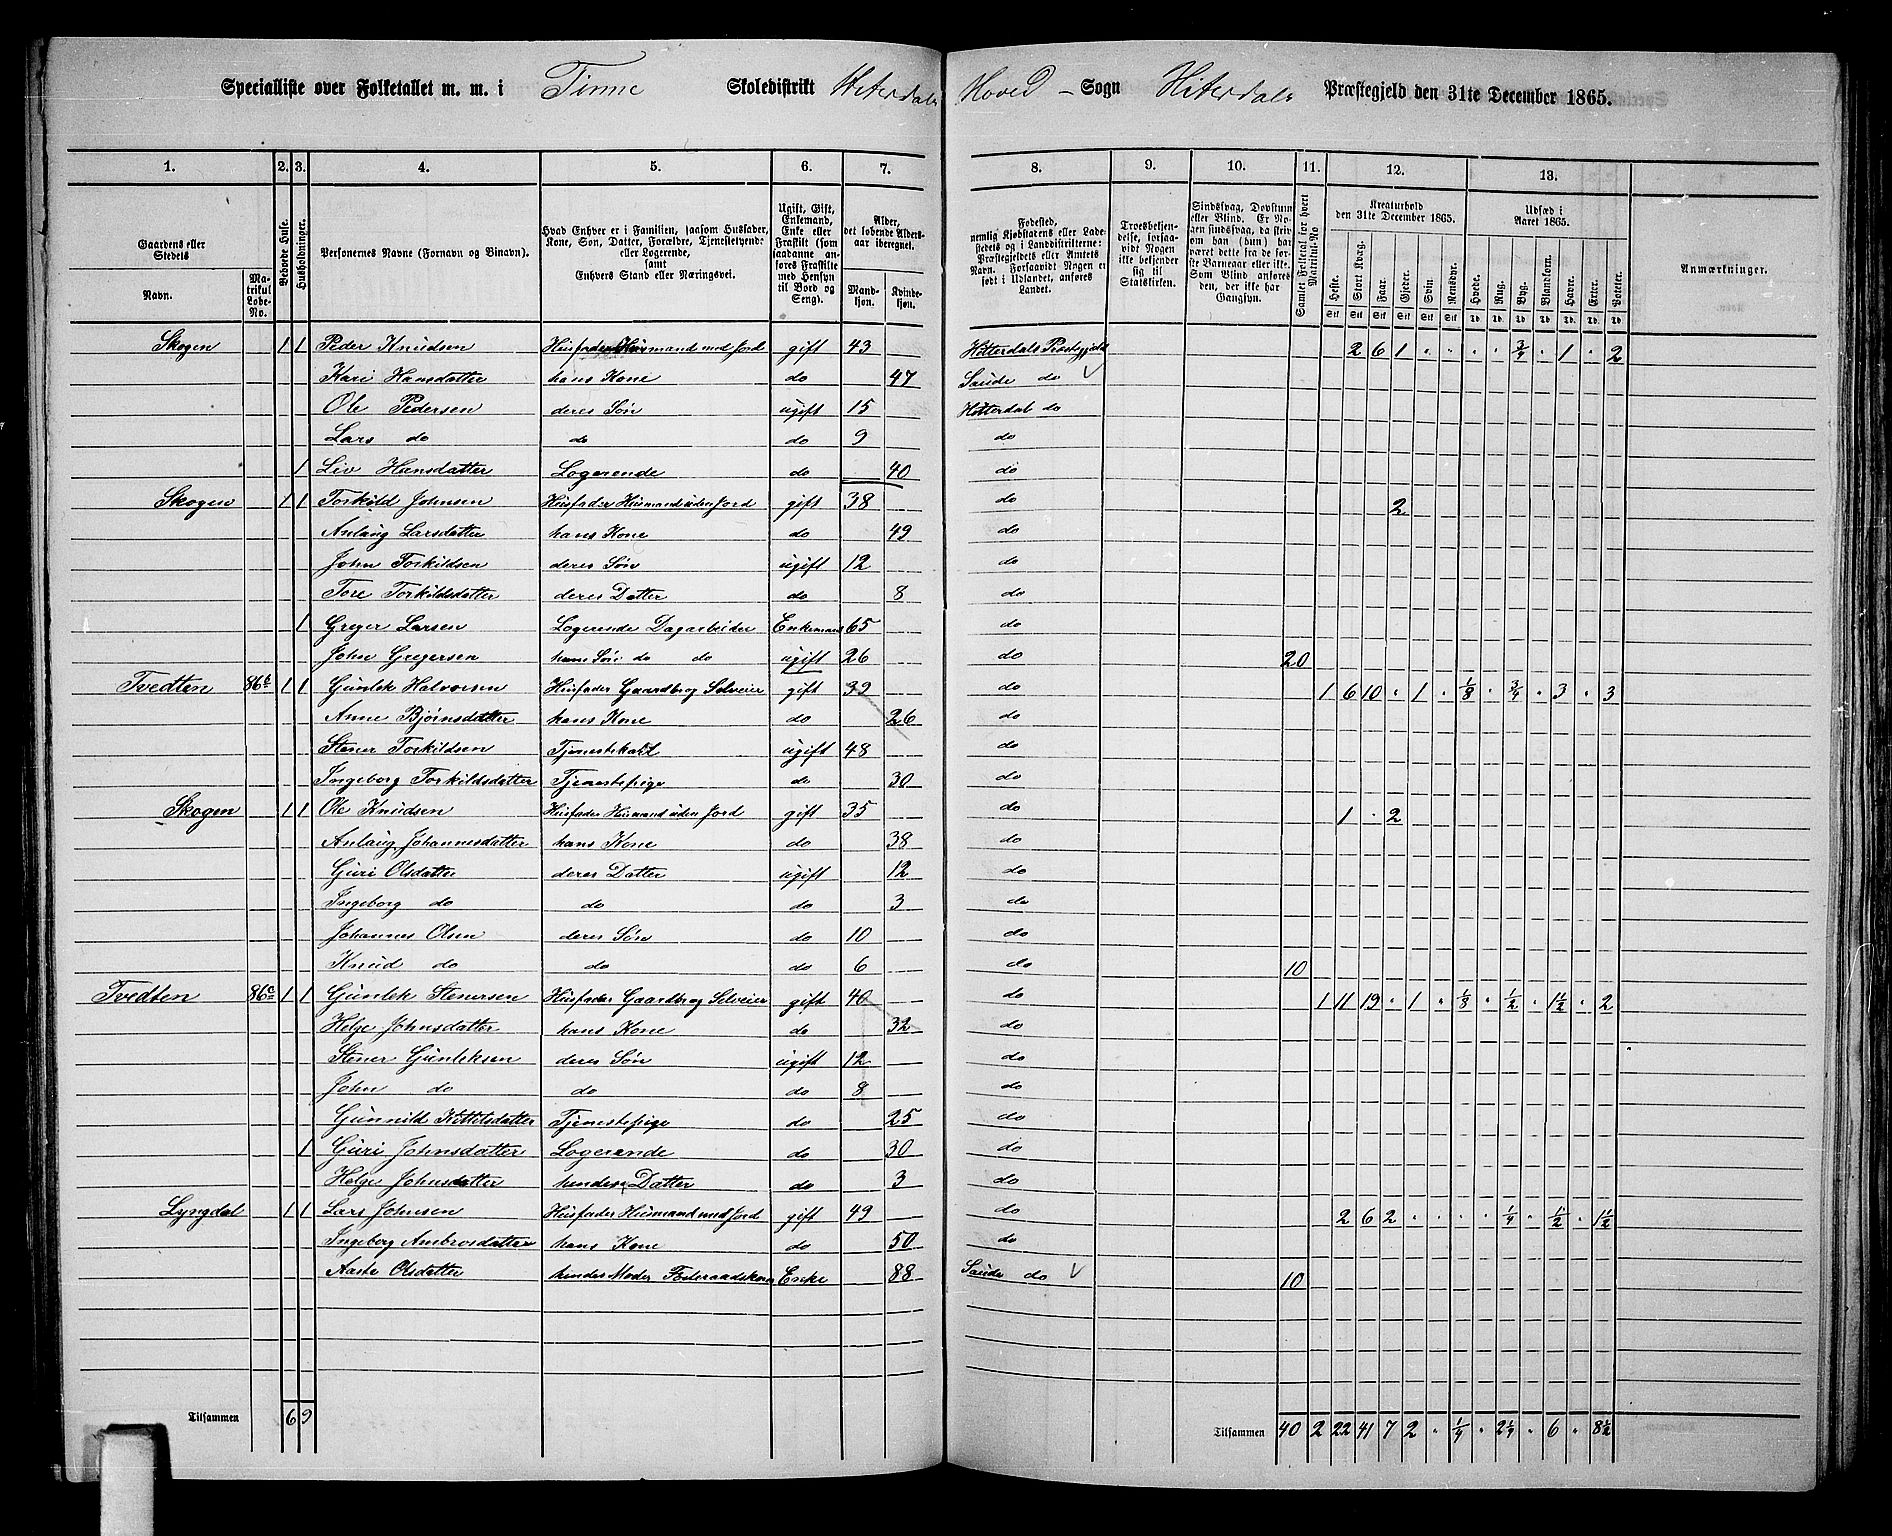 Specialliste over Folketallet m. m. i Tinne Skoledistrikt Hiterdals Hoved - Sogn Hiterdals Præstegjeld den 31te December 1865.
1. 2. 3. 4. 5. 6. 7. 8. 9. 10. 11. 12. 13.
Gaardens eller Stedets
Navn. Matrikul Løbe-No.
Beboede Huse.
Husholdninger.
Personernes Navne (Fornavn og Binavn).
Hvad Enhver er i Familien, saasom Husfader, Kone, Søn, Datter, Forældre, Tjenestetyende eller Logerende, samt Enhvers Stand eller Næringsvei.
Ugift, Gift, Enkemand, Enke eller Fraskilt (som saadanne anføres Fraskilte med Hensyn til Bord og Seng).
Alder, det løbende Alders-aar iberegnet.
Mandkjøn. Kvindekjøn.
Fødested, nemlig Kjøbstadens eller Ladestedets og i Landdistrikterne: Præstegjeldets eller Amtets Navn. Forsaavidt Nogen er født i Udlandet, anføres Landet.
Troesbekjendelse, forsaavidt Nogen ikke bekjender sig til Statskirken.
Sindssvag, Døvstum eller Blind. Er Nogen sindssvag, da skrives om han (hun) har været dette fra de første Barneaar eller ikke. Som Blind anføres den, der ikke har Gangsyn.
Samlet Folketal for hvert Matrikul-No
Kreaturhold den 31te December 1865.
Heste. Stort Kvæg. Faar. Gjeder. Svin. Rensdyr.
Udsæd i Aaret 1865.
Hvede. Rug. Byg. Blandkorn. Havre. Erter. Poteter.
Anmærkninger.
Skogen 1 1 Peder Knudsen Husfader Husmand med Jord gift 43 Hitterdals Præstgjeld 2 6 1 " " " " 3/4 " 1 " 2
Kari Hansdatter hans Kone do 47 Saude do
Ole Pedersen deres Søn ugift 15 Hitterdal do
Lars do do do 9 do
1 Liv Hansdatter Logerende do 40 do
Skogen 1 1 Torkild Johnsen Husfader Husmand uden Jord gift 38 do 2
Anlaug Larsdatter hans Kone do 49 do
John Torkildsen deres Søn ugift 12 do
Tore Torkildsdatter deres Datter do 8 do
1 Greger Larsen Logerende Dagarbeider Enkemand 65 do
John Gregersen hans Søn do do ugift 26 do 20
Tvedten 86b 1 1 Gunlek Halvorsen Husfader Gaardbr og Selveier gift 39 do 1 6 10 " 1 " 1/8 " 3/4 " 3 " 3
Anne Bjørnsdatter hans Kone do 26 do
Stener Torkildsen Tjenestekarl ugift 48 do
Ingeborg Torkildsdatter Tjenestepige do 30 do
Skogen 1 1 Ole Knudsen Husfader Husmand uden Jord gift 35 do 1 " 2
Anlaug Johannesdatter hans Kone do 38 do
Guri Olsdatter deres Datter ugift 12 do
Ingeborg do do do 3 do
Johannes Olsen deres Søn do 10 do
Knud do do do 6 do 10
Tvedten 86c 1 1 Gunlek Stenersen Husfader Gaardbr og Selveier gift 40 do 1 11 19 " 1 " 1/8 " 1/2 " 1 1/2 " 2
Helge Johnsdatter hans Kone do 32 do
Stener Gunleksen deres Søn ugift 12 do
John do do do 8 do
Gunnild Kittilsdatter Tjenestepige do 25 do
1 Guri Johnsdatter Logerende do 30 do
Helge Johnsdatter hendes Datter do 3 do
Lyngdal 1 1 Lars Johnsen Husfader Husmand med Jord gift 49 do 2 6 2 " " " " 1/4 " 1/2 " 1 1/2
Ingeborg Ambrosdatter hans Kone do 50 do
Aaste Olsdatter hendes Moder Føderaadskone Enke 88 Saude do 10
Tilsammen 6 9 Tilsammen 40 2 22 41 7 2 " 1/4 " 2 1/4 " 6 " 8 1/2